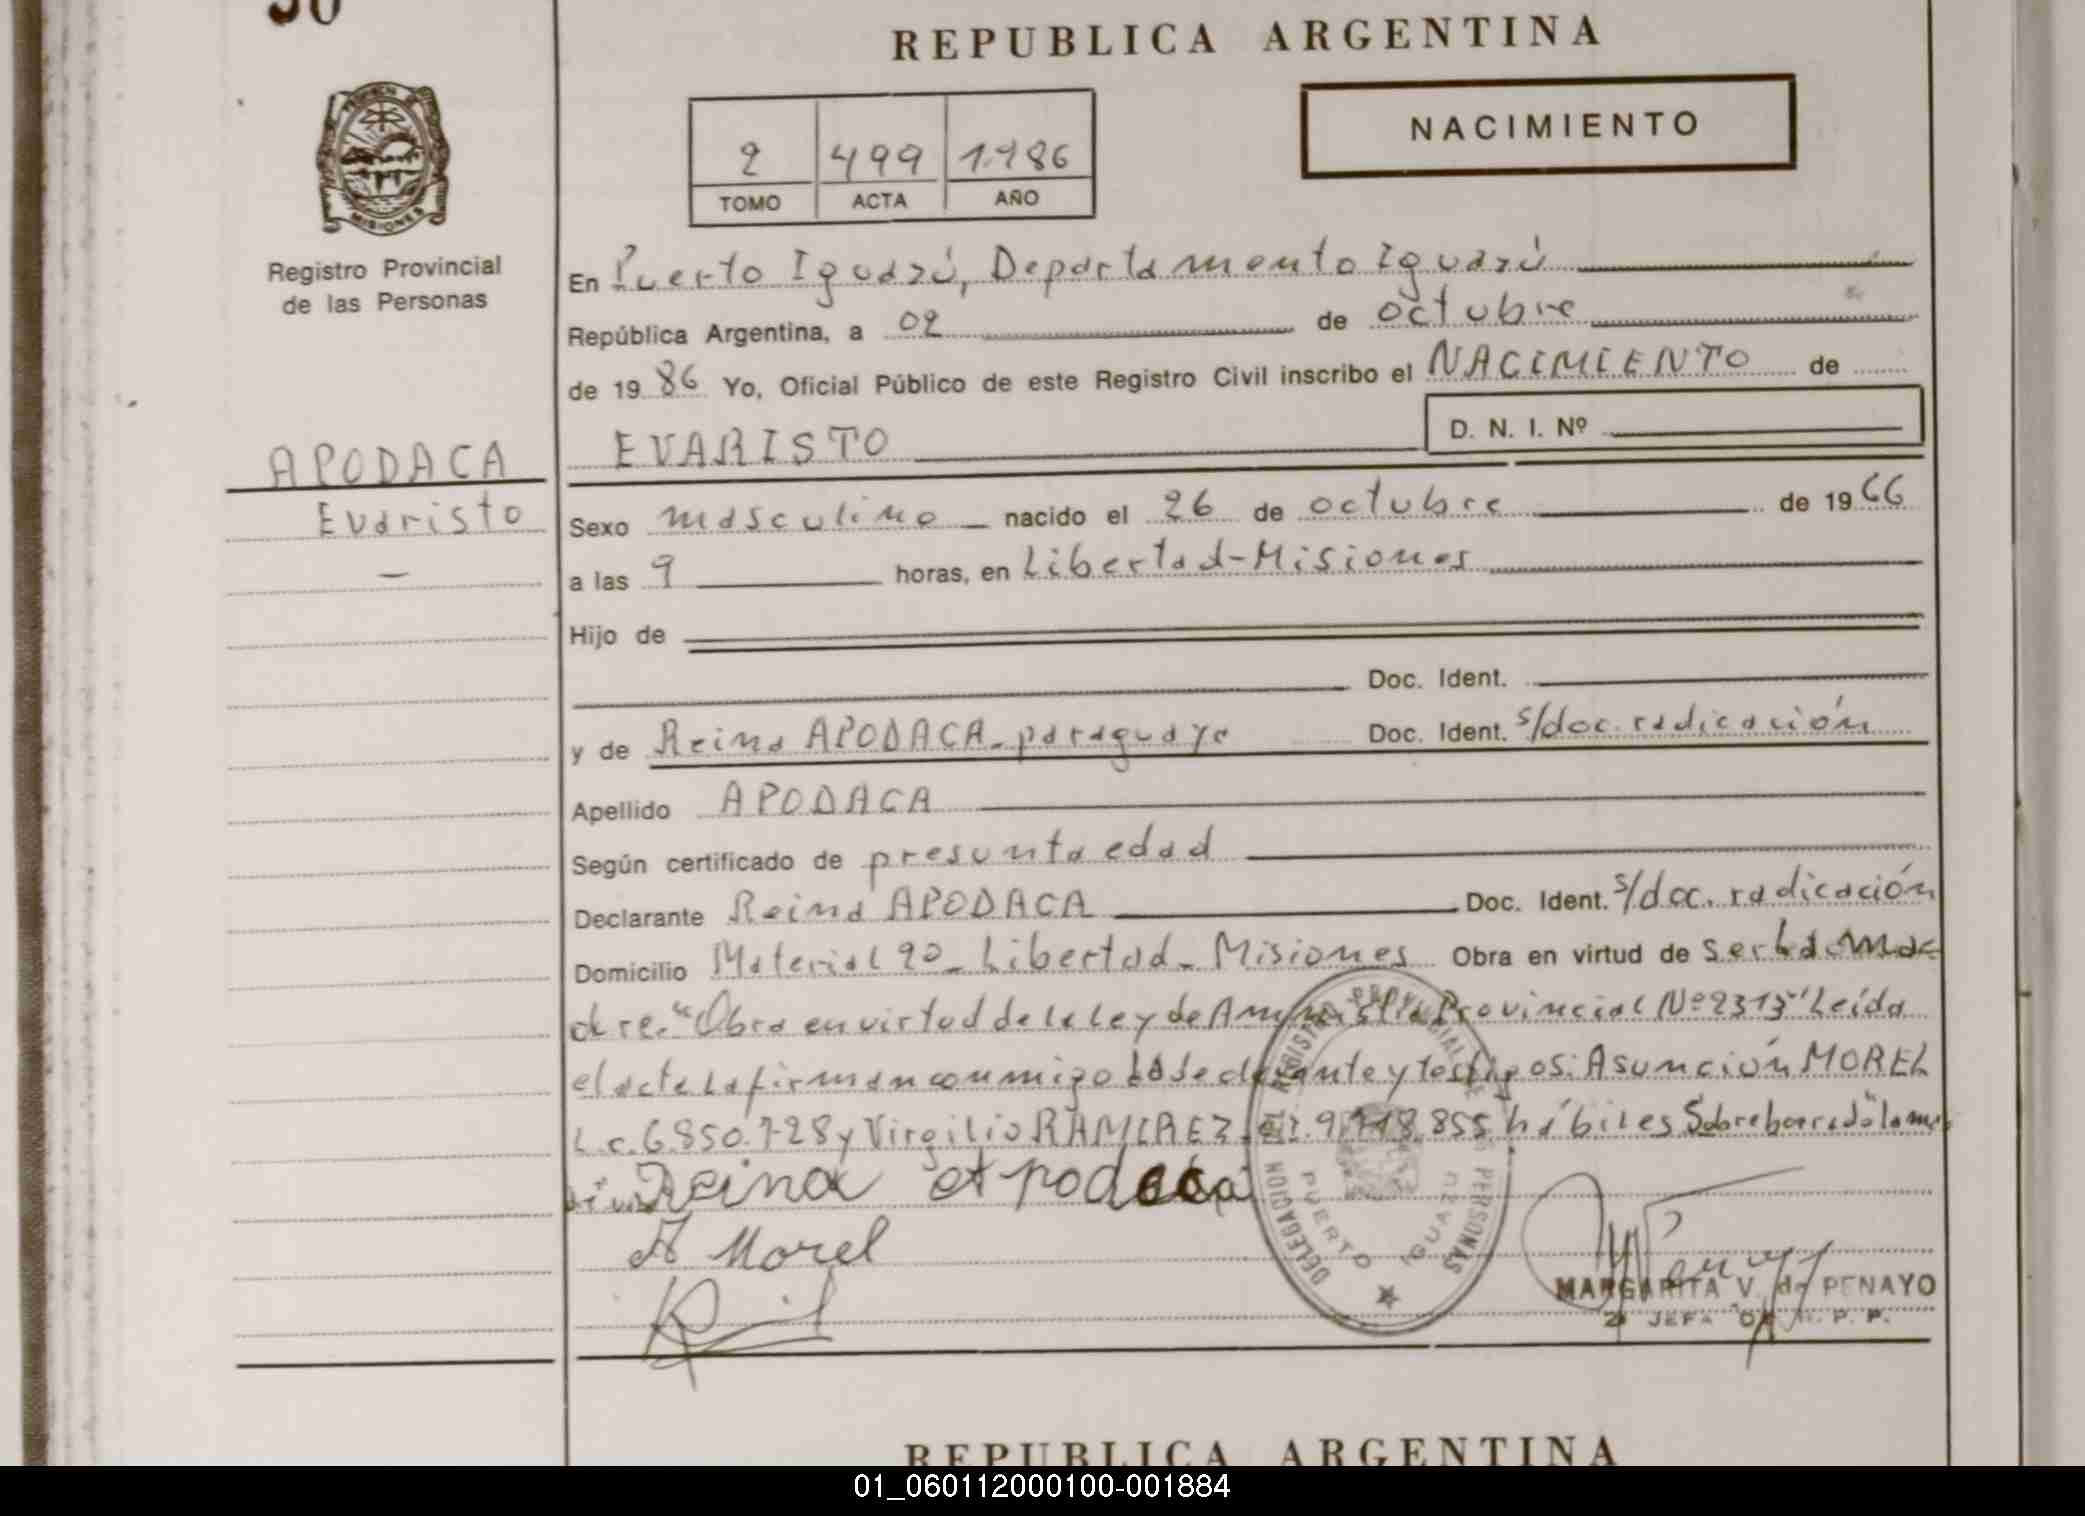 REPUBLICA ARGENTINA
NACIMIENTO
2 499 1.986
TOMO ACTA AÑO
MISIONES
Registro Provincial
de las Personas
En Puerto Iguazú, Departamento Iguazú
República Argentina, a 02 de octubre
de 1986 Yo, Oficial Público de este Registro Civil inscribo el NACIMIENTO de
D. N. I. Nº
APODACA
Evaristo
EVARISTO
Sexo masculino nacido el 26 de octubre de 1966
a las 9 horas, en Libertad-Misiones
Hijo de
Doc. Ident.
y de Reina APODACA-paraguaya Doc. Ident. s/doc. radicación
Apellido APODACA
Según certificado de presunta edad
Declarante Reina APODACA Doc. Ident. s/doc. radicación
Domicilio Material 90-Libertad-Misiones Obra en virtud de ser la ma
dre. "Obra en virtud de la Ley de Amnistía Provincial Nº 2313" Leída
el acta la firman conmigo la declarante y testigos: Asunción MOREL
L.c. 6850.728 y Virgilio RAMIREZ 855 hábiles Sobreborrado
Reina Apodaca
A Morel
DELEGACION DEL REGISTRO PROVINCIAL DE PERSONAS
PUERTO IGUAZU
MARGARITA V. de PENAYO
JEFA
REPUBLICA ARGENTINA
01_060112000100-001884